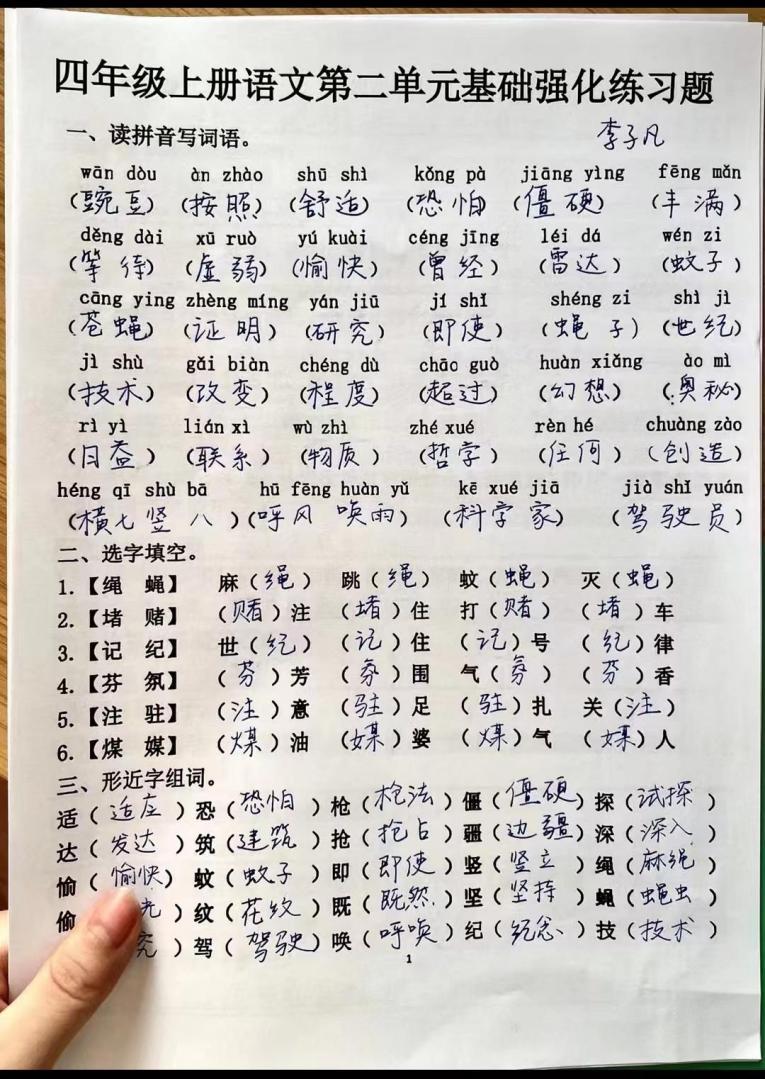 四年级上册语文第二单元基础强化练习题
一、读拼音写词语。 李子凡
wān dòu àn zhào shū shì kǒng pà jiāng yìng fēng mǎn
(豌豆) (按照) (舒适) (恐怕) (僵硬) (丰满)
děng dài xū ruò yú kuài céng jīng léi dá wén zi
(等待) (虚弱) (愉快) (曾经) (雷达) (蚊子)
cāng ying zhèng míng yán jiū jí shǐ shéng zi shì jì
(苍蝇) (证明) (研究) (即使) (绳子) (世纪)
jì shù gǎi biàn chéng dù chāo guò huàn xiǎng ào mì
(技术) (改变) (程度) (超过) (幻想) (奥秘)
rì yì lián xì wù zhì zhé xué rèn hé chuàng zào
(日益) (联系) (物质) (哲学) (任何) (创造)
héng qī shù bā hū fēng huàn yǔ kē xué jiā jià shǐ yuán
(横七竖八) (呼风唤雨) (科学家) (驾驶员)
二、选字填空。
1.【绳 蝇】 麻(绳) 跳(绳) 蚊(蝇) 灭(蝇)
2.【堵 赌】 (赌)注 (堵)住 打(赌) (堵)车
3.【记 纪】 世(纪) (记)住 (记)号 (纪)律
4.【芬 氛】 (芬)芳 (氛)围 气(氛) (芬)香
5.【注 驻】 (注)意 (驻)足 (驻)扎 关(注)
6.【煤 媒】 (煤)油 (媒)婆 (煤)气 (媒)人
三、形近字组词。
适(适应) 恐(恐怕) 枪(枪法) 僵(僵硬) 探(试探)
达(发达) 筑(建筑) 抢(抢占) 疆(边疆) 深(深入)
愉(愉快) 蚊(蚊子) 即(即使) 竖(竖立) 绳(麻绳)
偷( ) 纹(花纹) 既(既然) 坚(坚持) 蝇(蝇虫)
究) 驾(驾驶) 唤(呼唤) 纪(纪念) 技(技术)
1